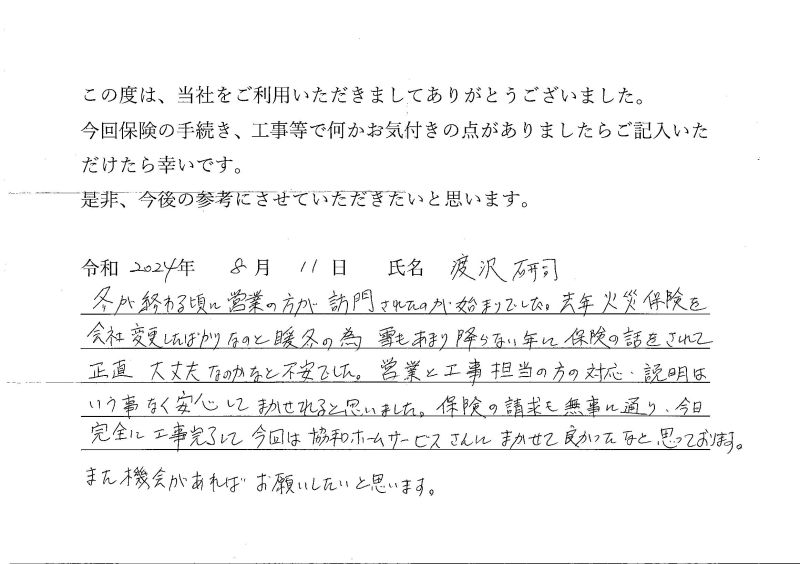 この度は、当社をご利用いただきましてありがとうございました。
今回保険の手続き、工事等で何かお気付きの点がありましたらご記入いた
だけたら幸いです。
是非、今後の参考にさせていただきたいと思います。
令和 2024年 8月 11日 氏名 渡沢 研司
冬が終わる頃に営業の方が訪門されたのが始まりでした。去年火災保険を
会社変更したばかりなのと暖冬の為 雪もあまり降らない年に保険の話をされて
正直 大丈夫なのかなと不安でした。営業と工事担当の方の対応・説明は
いう事なく安心してまかせれると思いました。保険の請求も無事に通り、今日
完全に工事完了して今回は協和ホームサービスさんにまかせて良かったなと思っております。
また機会があればお願いしたいと思います。